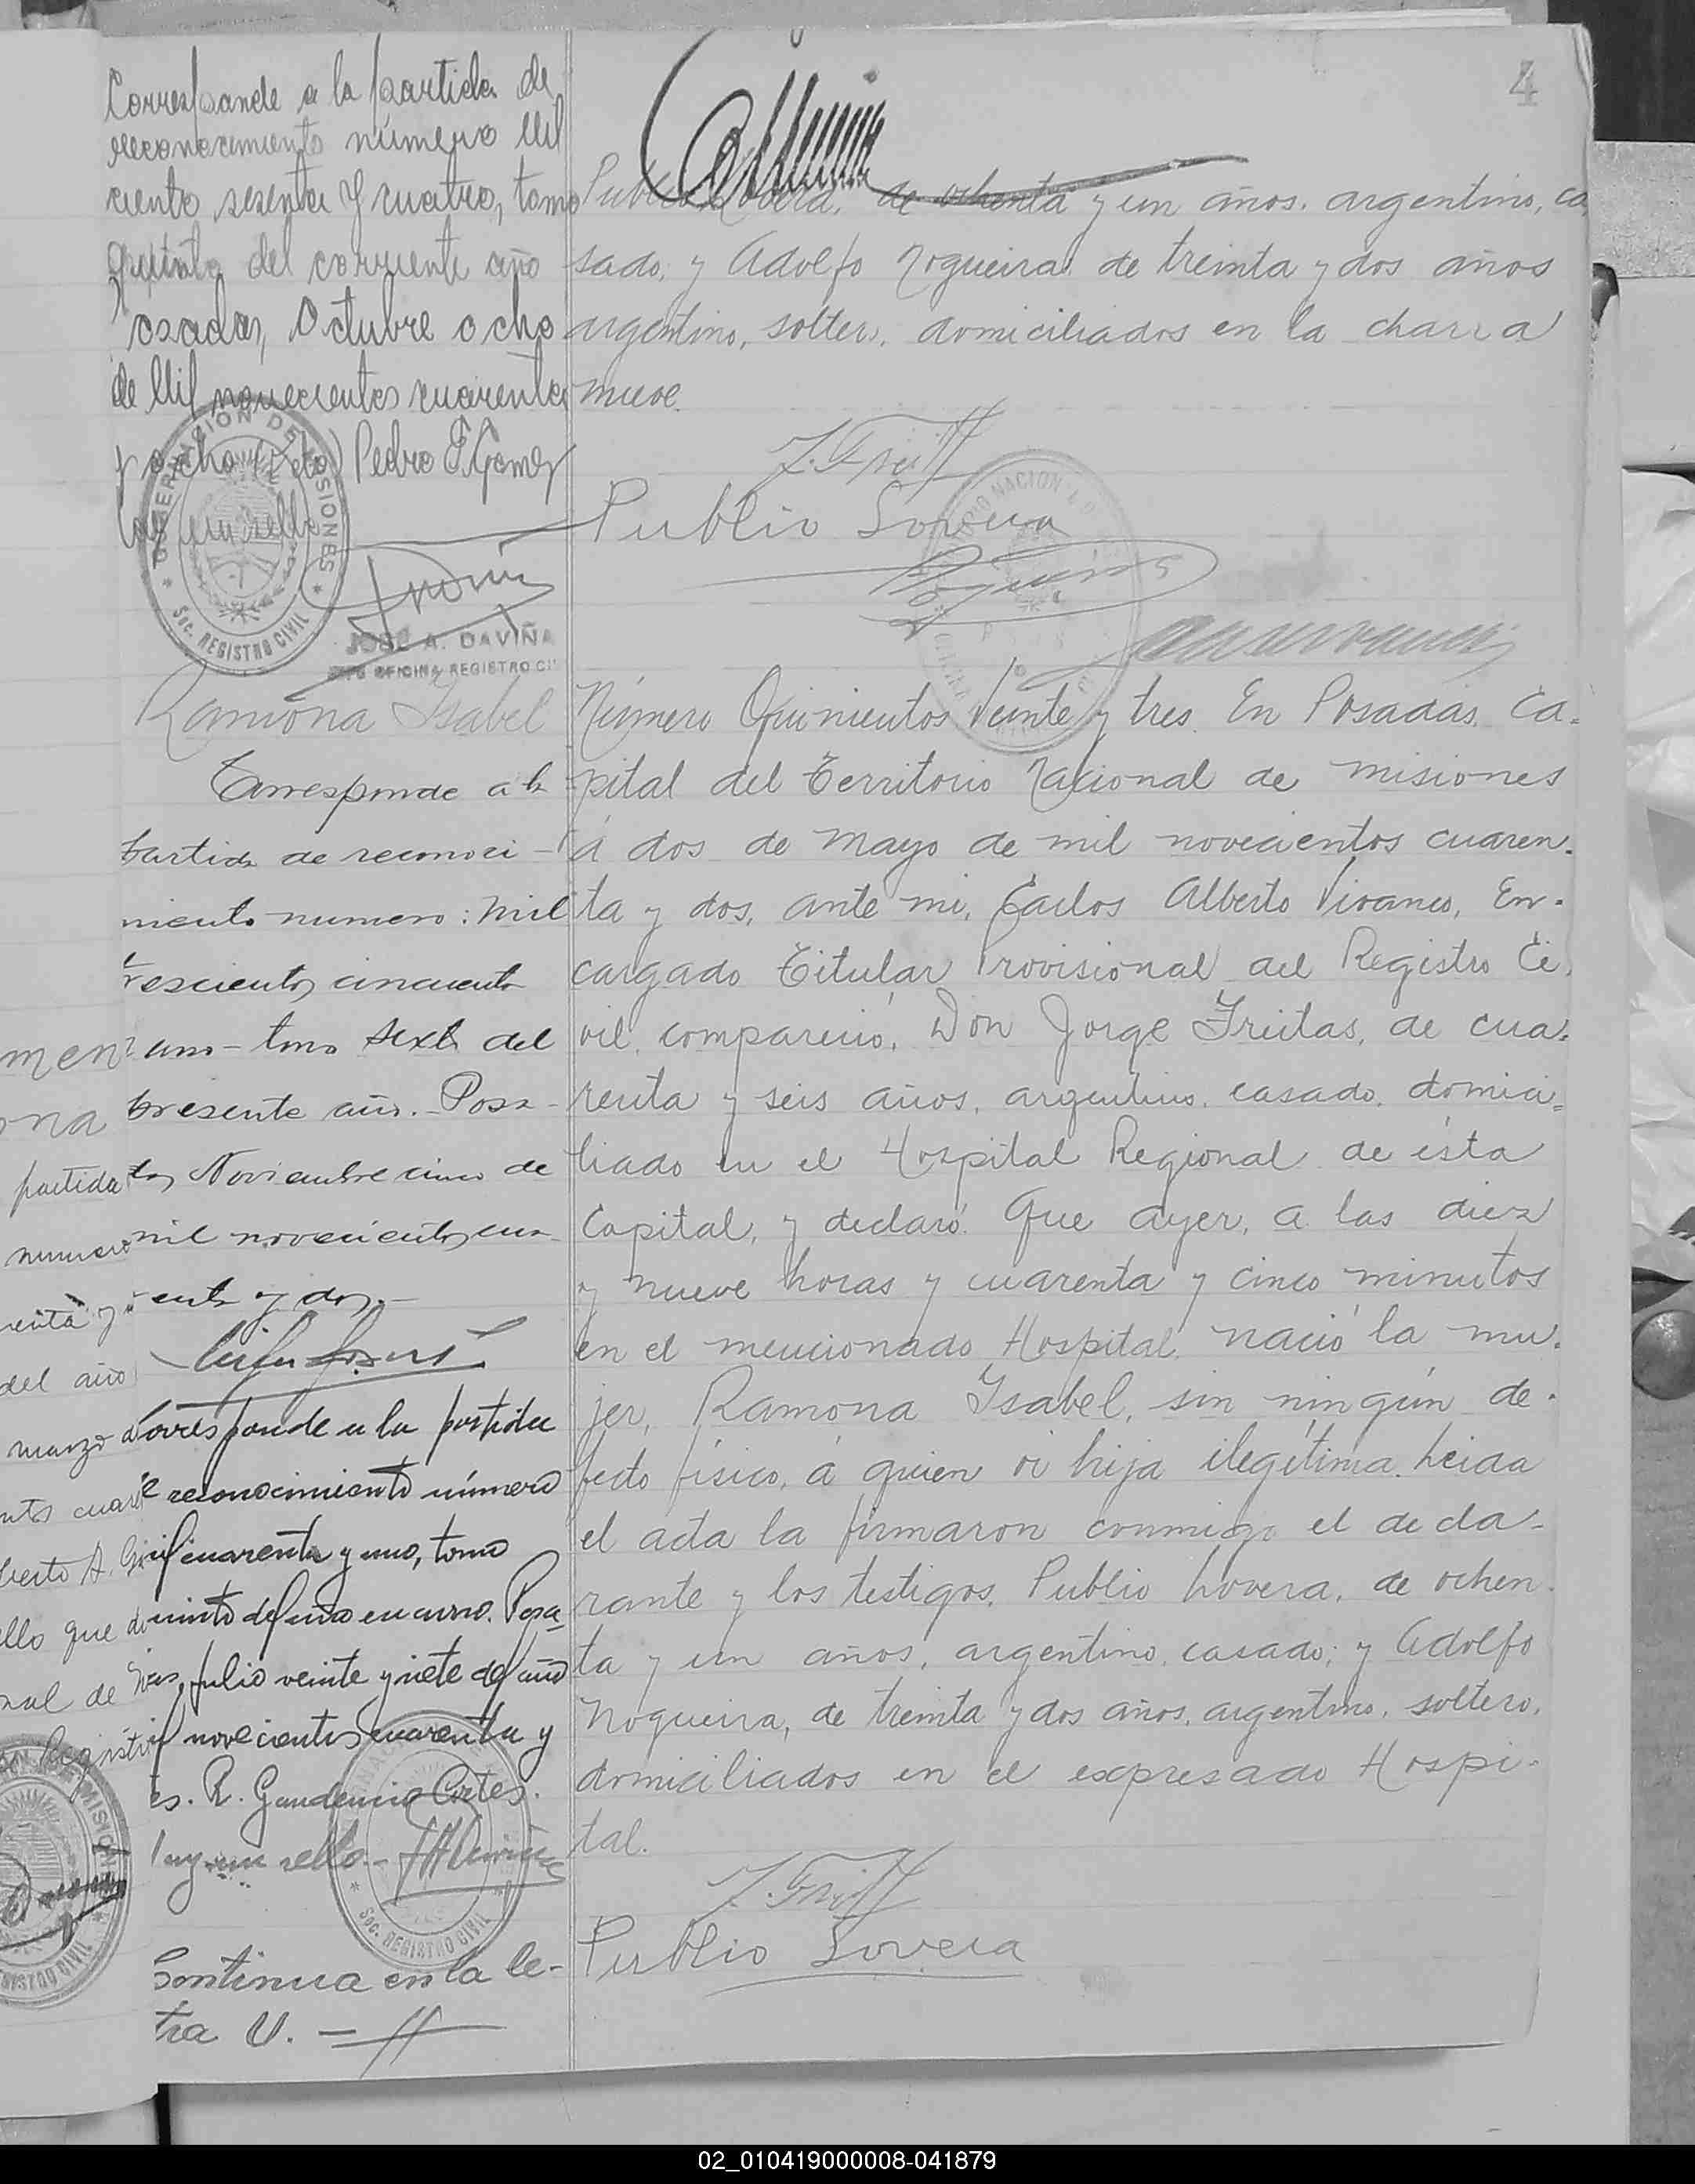 4
Corresponde a la partida de
reconocimiento número Mil
ciento sesenta y cuatro, tomo
quinto del corriente año
Posadas, Octubre ocho
de Mil novecientos cuarenta
y ocho (Fdo) Pedro E. Gomez
Hay un sello
GOBERNACION DE MISIONES
Soc. REGISTRO CIVIL
JOSE A. DAVIÑA
OFICINA REGISTRO CI
Publio Lovera, de ochenta y un años, argentino, ca
sado; y Adolfo Nogueira, de treinta y dos años
argentino, soltero, domiciliados en la chacra
nueve.
Publio Lovera
Ramona Isabel
Corresponde a la
partida de reconoci-
miento numero: mil
trescientos cincuenta
uno - tomo sexto del
presente año. - Posa-
das, Noviembre cinco de
mil novecientos cua
renta y dos. -
Corresponde a la partida
de reconocimiento número
mil cuarenta y uno, tomo
quinto del año en curso. Posa-
das, Julio veinte y siete del año
mil novecientos cuarenta y
tes. R. Gaudencio Cortes.
Hay un sello. -
Soc. REGISTRO CIVIL
Continua en la le-
tra U. -
Número Quinientos Veinte y tres. En Posadas, Ca-
pital del Territorio Nacional de Misiones
á dos de Mayo de mil novecientos cuaren-
ta y dos, ante mi, Carlos Alberto Vivanco, En-
cargado Titular Provisional del Registro Ci-
vil, compareció, Don Jorge Freitas, de cua-
renta y seis años, argentino, casado, domici-
liado en el Hospital Regional de ésta
Capital, y declaró: Que ayer, a las diez
y nueve horas y cuarenta y cinco minutos
en el mencionado Hospital, nació la mu-
jer, Ramona Isabel, sin ningún de-
fecto físico, á quien ví hija ilegítima. Leida
el acta la firmaron conmigo el decla-
rante y los testigos, Publio Lovera, de ochen-
ta y un años, argentino, casado; y Adolfo
Nogueira, de treinta y dos años, argentino, soltero,
domiciliados en el expresado Hospi-
tal.
Publio Lovera
partida
numero
del año
marzo
ello que
02_010419000008-041879